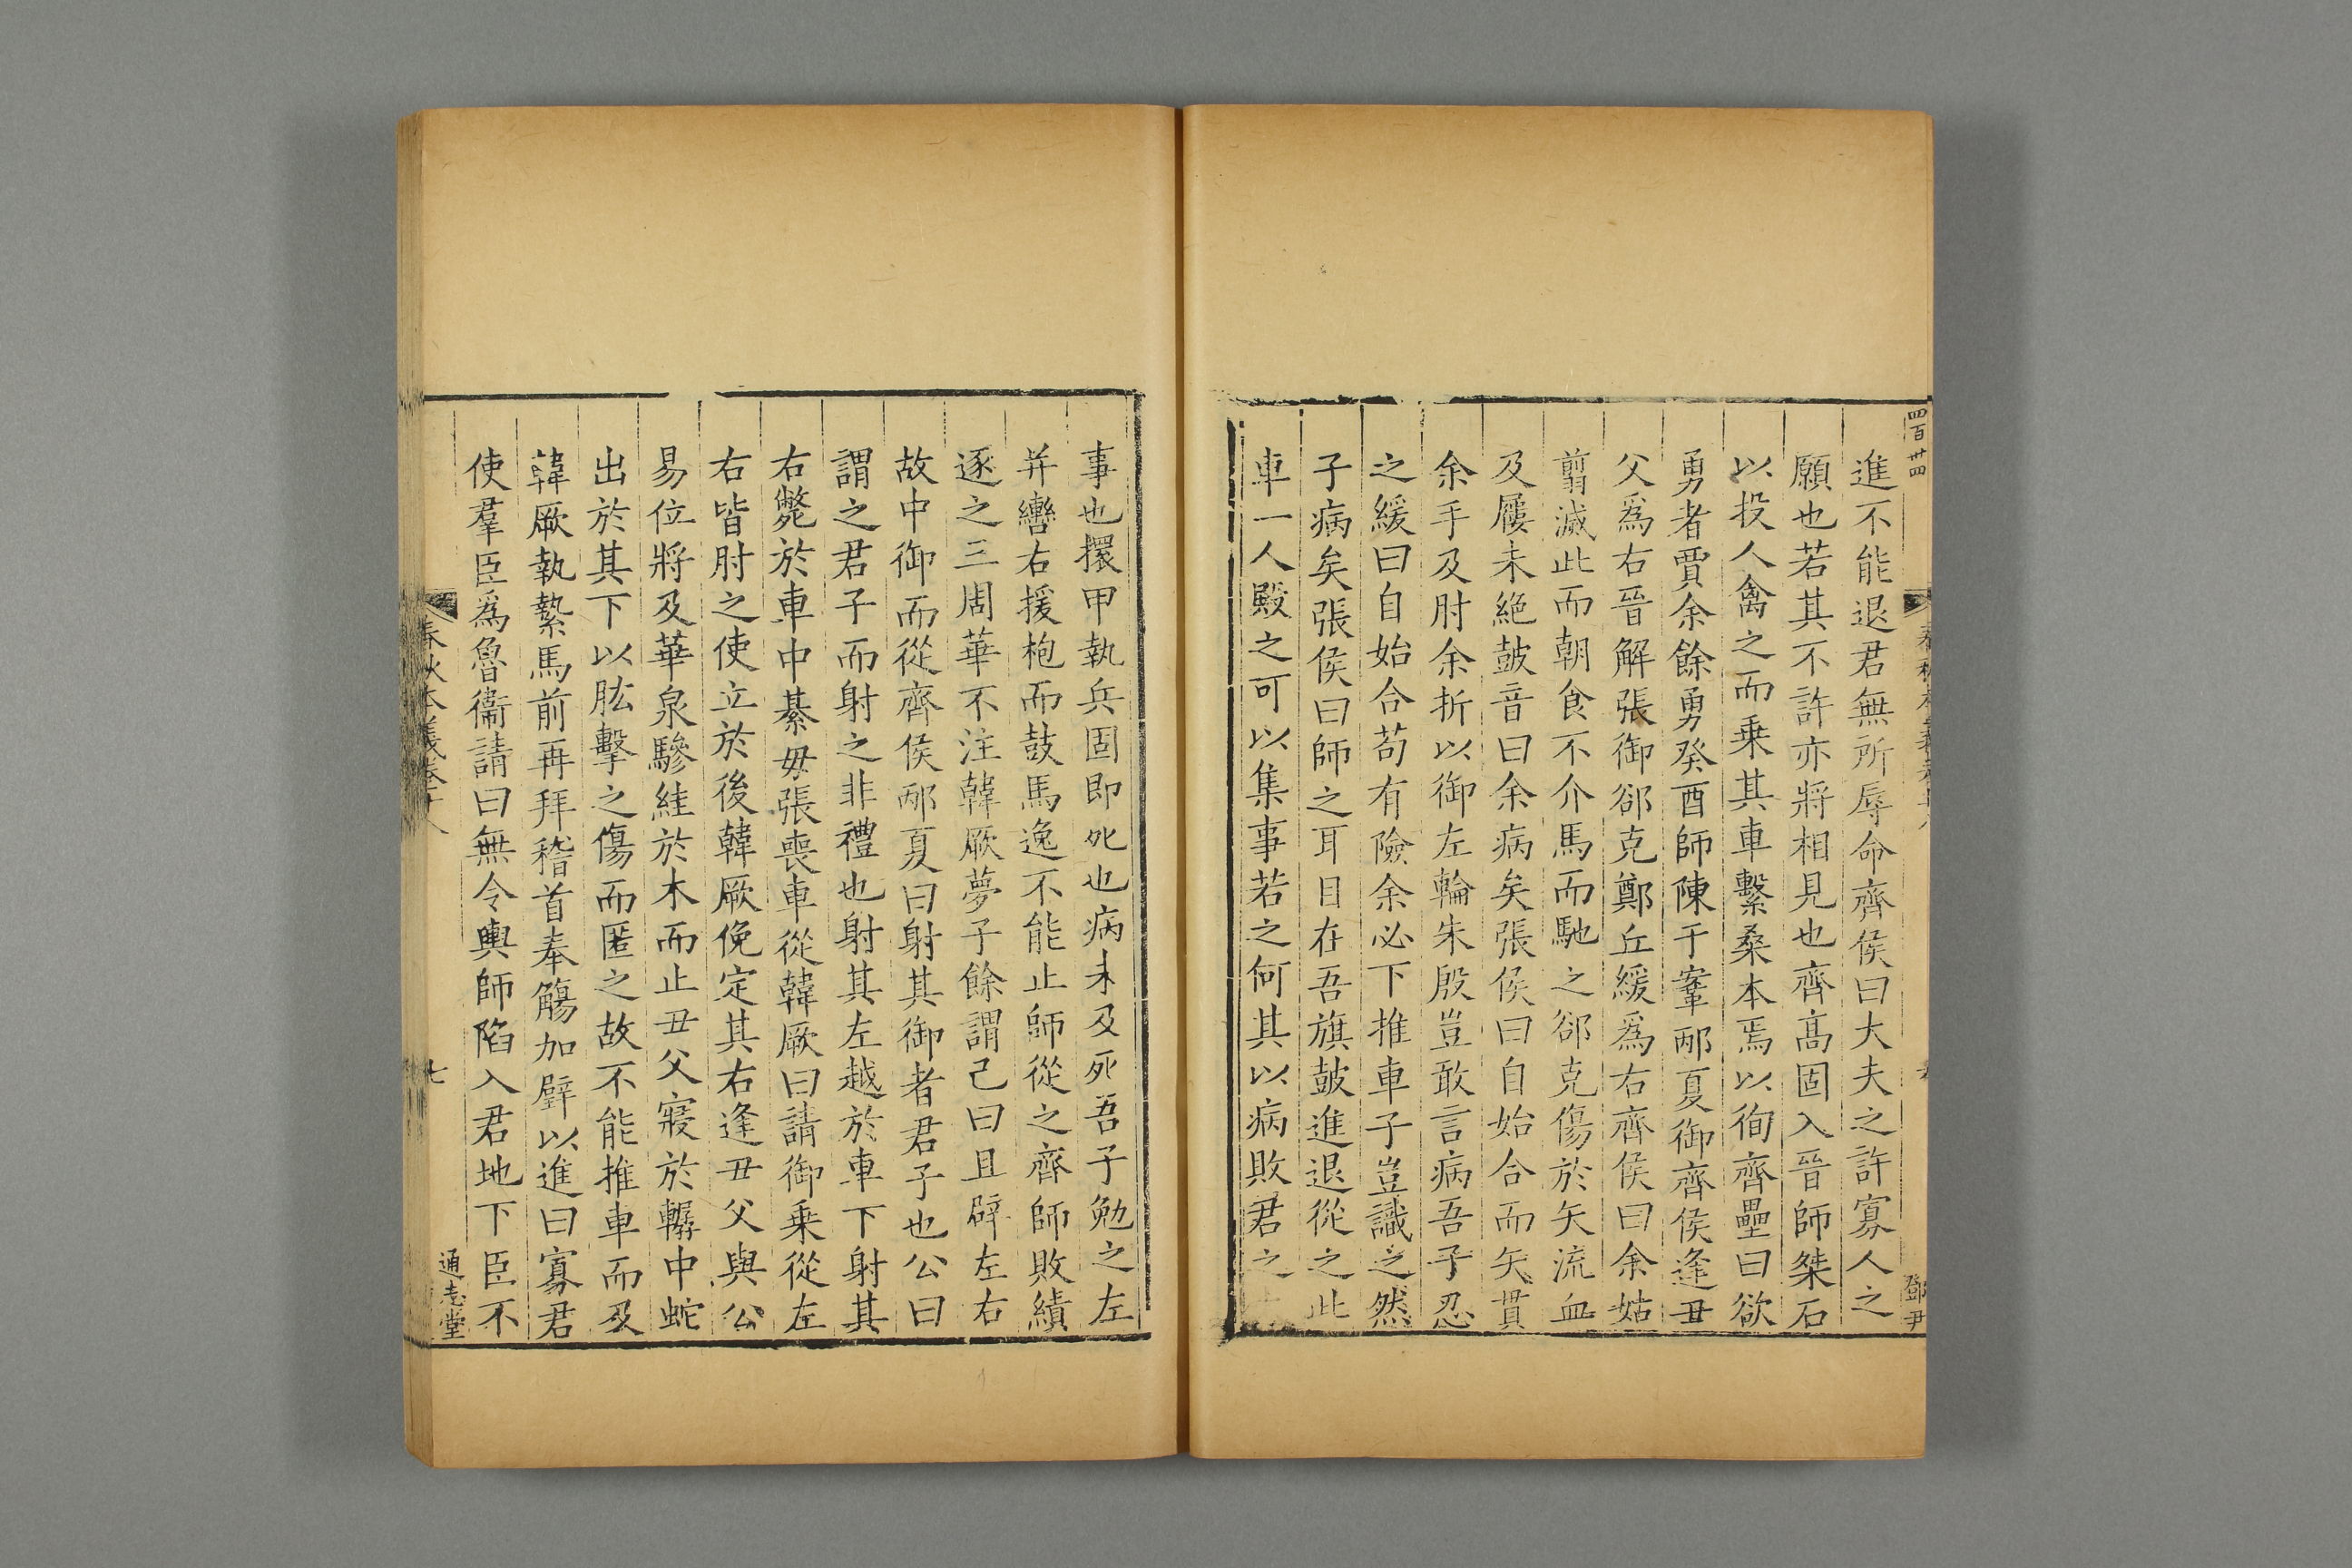 四百卅四
鄧尹
進不能退君無所辱命齊侯曰大夫之許寡人之
願也若其不許亦將相見也齊髙固入晉師桀石
以投人禽之而乗其車繫桑本焉以徇齊壘曰欲
勇者賈余餘勇癸酉師陳于鞌邴夏御齊侯逢丑
父爲右晉解張御郤克鄭丘緩爲右齊侯曰余姑
翦滅此而朝食不介馬而馳之郤克傷於矢流血
及屨未絶皷音曰余病矣張侯曰自始合而矢貫
余手及肘余折以御左輪朱殷豈敢言病吾子忍
之緩曰自始合苟有險余必下推車子豈識之然
子病矣張侯曰師之耳目在吾旗皷進退從之此
車一人殿之可以集事若之何其以病敗君之
事也擐甲執兵固即死也病未及死吾子勉之左
并轡右援枹而鼓馬逸不能止師從之齊師敗績
逐之三周華不注韓厥夢子餘謂己曰且辟左右
故中御而從齊侯邴夏曰射其御者君子也公曰
謂之君子而射之非禮也射其左越於車下射其
右斃於車中綦毋張喪車從韓厥曰請御乗從左
右皆肘之使立於後韓厥俛定其右逢丑父與公
易位將及華泉驂絓於木而止丑父寢於轏中蛇
出於其下以肱擊之傷而匿之故不能推車而及
韓厥執縶馬前再拜稽首奉觴加璧以進曰寡君
使羣臣爲魯衞請曰無令輿師陷入君地下臣不
春秋本義卷十八
七
通志堂